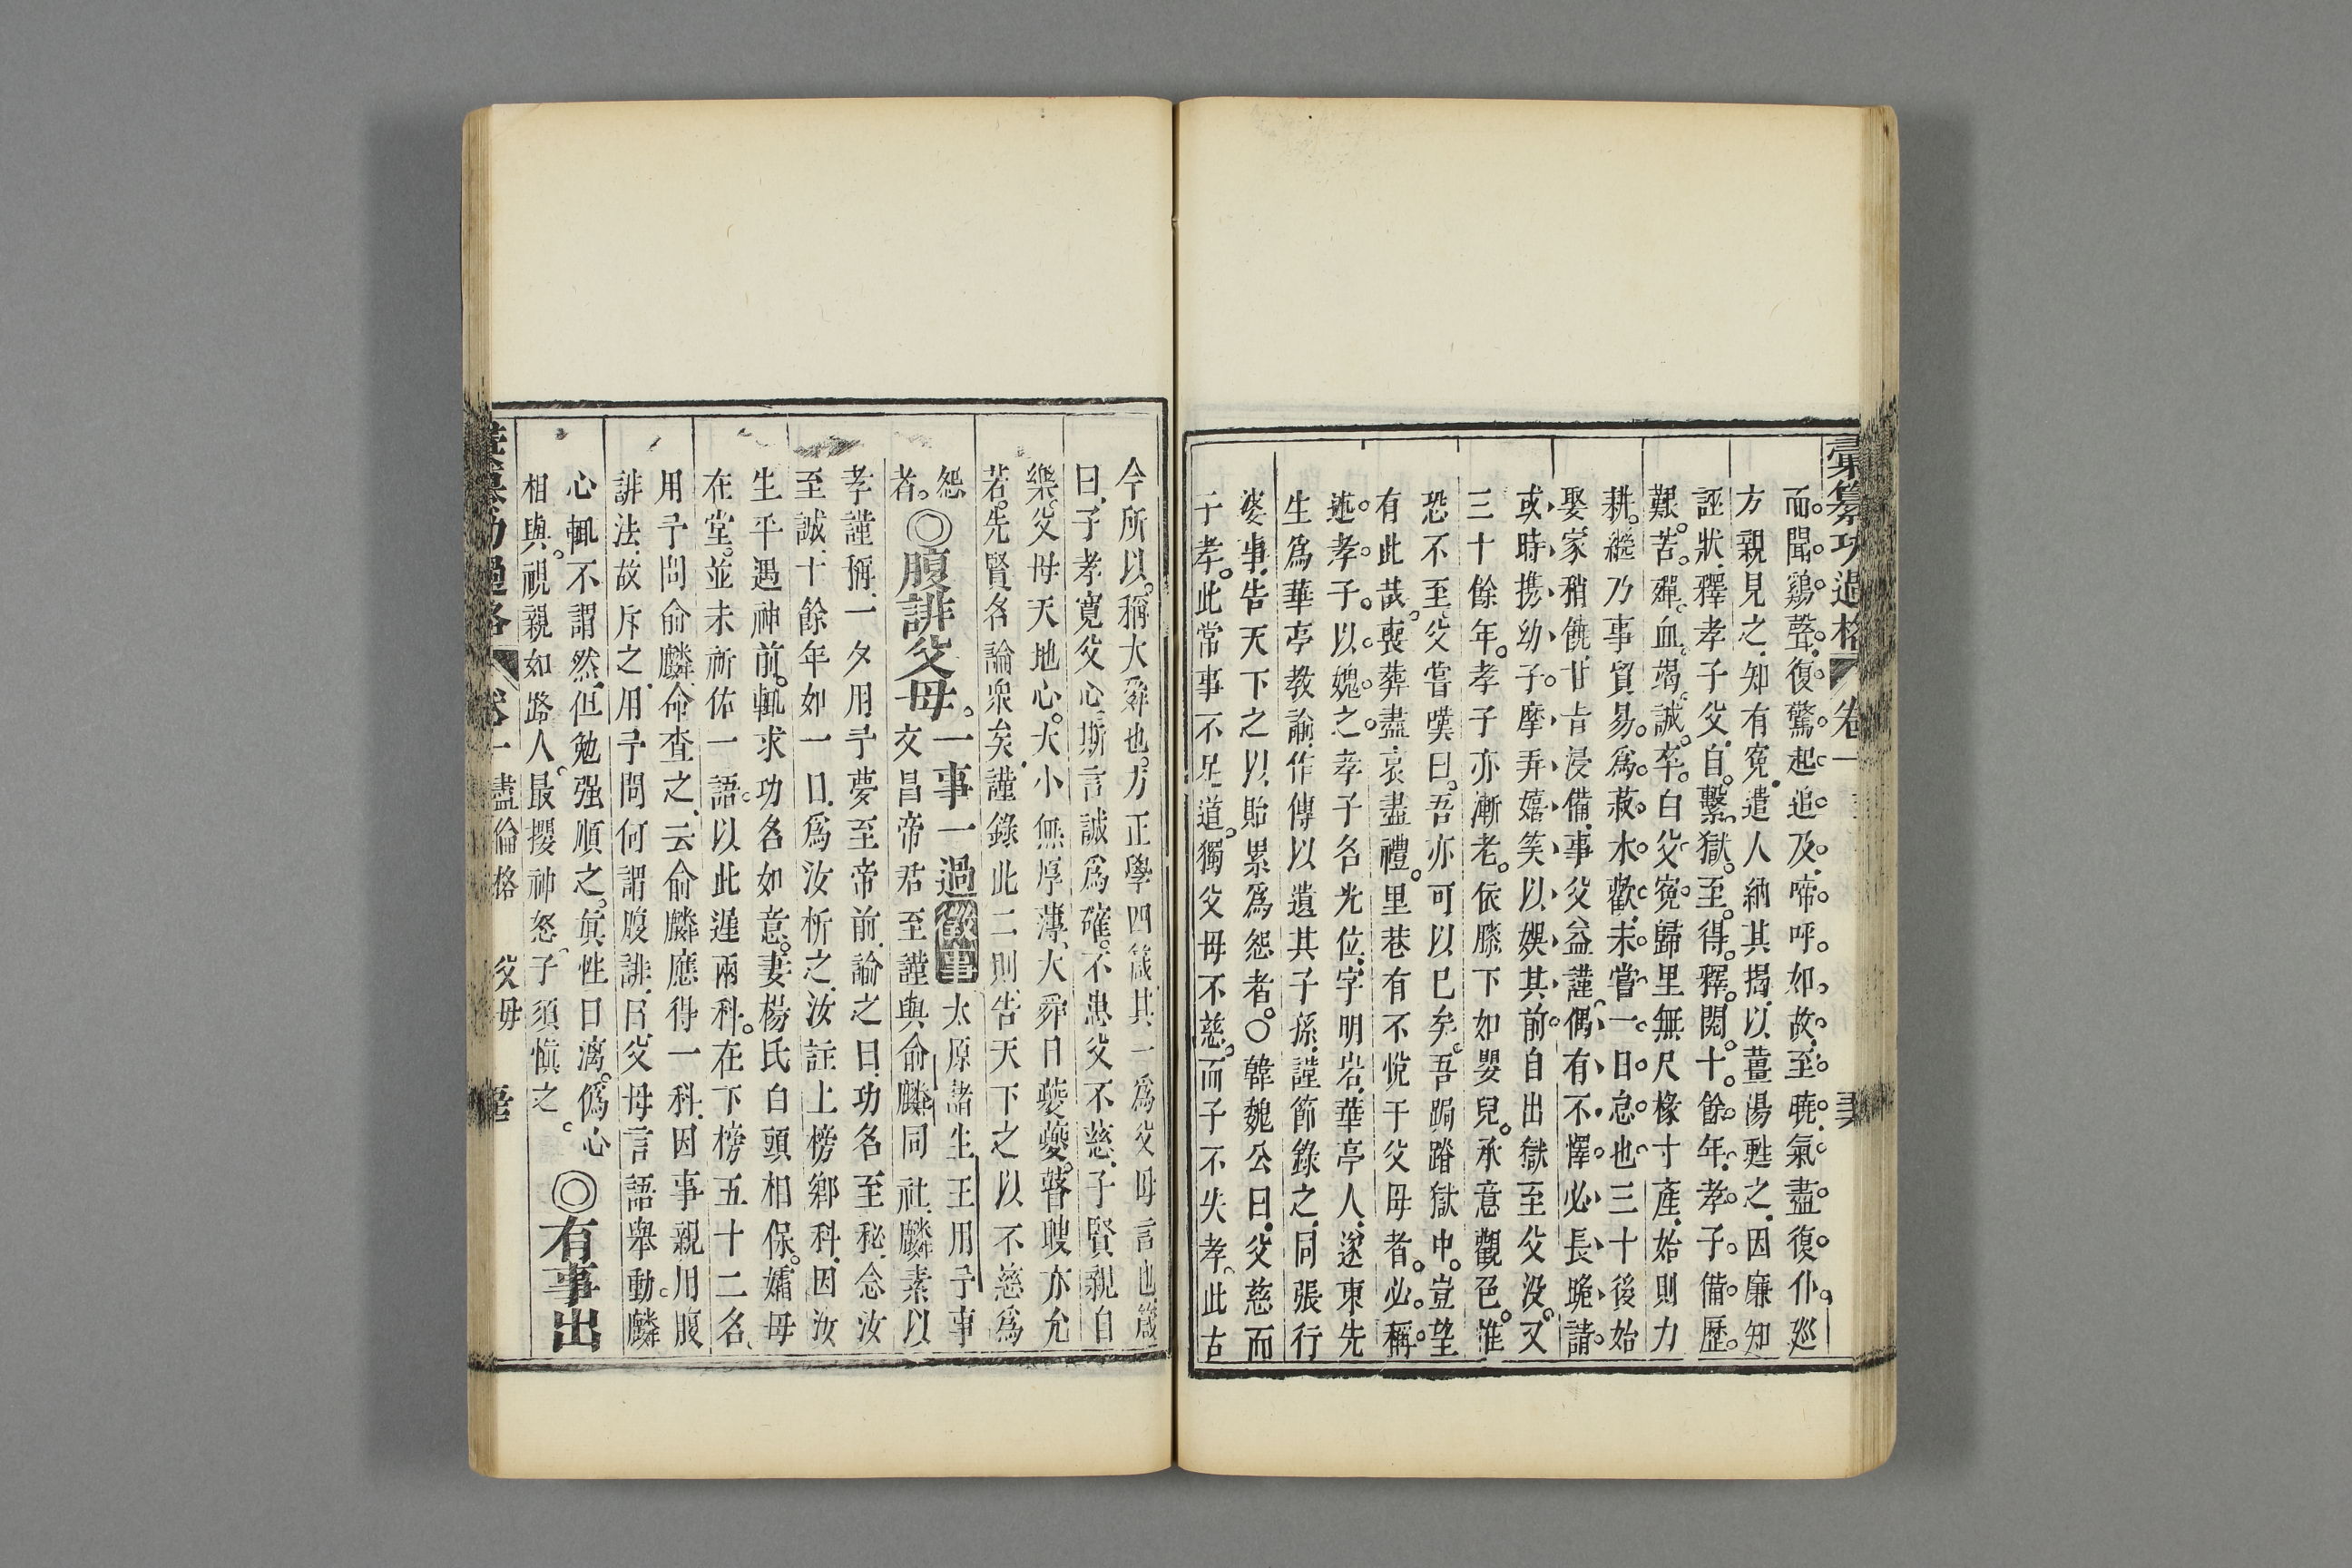 彙纂功過格 卷一
而聞鷄聲。復驚起追及。啼呼如故。至曉氣盡復仆。巡
方親見之。知有寃。遣人納其揭。以薑湯甦之。因廉知
誣狀。釋孝子父。自繫獄至得釋。閱十餘年。孝子備歷
艱苦。殫血竭誠。卒白父寃。歸里無尺椽寸產。始則力
耕。繼乃事貿易。爲菽水歡。未嘗一日怠也。三十後始
娶。家稍饒。甘旨浸備。事父益謹。偶有不懌。必長跪請。
或時携幼子。摩弄嬉笑。以娛其前。自出獄至父没。又
三十餘年。孝子亦漸老。依膝下如嬰兒。承意觀色。惟
恐不至。父嘗嘆曰。吾亦可以已矣。吾跼蹐獄中。豈望
有此哉。喪葬盡哀盡禮。里巷有不悅于父母者。必稱
述孝子以媿之。孝子名光位。字明岩。華亭人。遂東先
生爲華亭教諭。作傳以遺其子孫。謹節錄之。同張行
婆事。告天下之以貽累爲怨者。○韓魏公曰。父慈而
子孝。此常事不足道。獨父母不慈。而子不失孝。此古
今所以稱大舜也。方正學四箴其一爲父母言也。箴
曰。子孝寛父心。斯言誠爲確。不患父不慈。子賢親自
樂。父母天地心。大小無厚薄。大舜日夔夔。瞽瞍亦允
若。先賢名論衆矣。謹錄此二則。告天下之以不慈爲
怨者。◎腹誹父母。一事一過 徵事 太原諸生王用予事
文昌帝君至謹。與俞麟同社。麟素以
孝謹稱。一夕用予夢至帝前。諭之曰。功名至秘。念汝
至誠。十餘年如一日。爲汝析之。汝註上榜鄉科。因汝
生平遇神前。輒求功名如意。妻楊氏白頭相保。孀母
在堂。並未祈佑一語。以此遲兩科。在下榜五十二名。
用予問俞麟。命査之。云俞麟應得一科。因事親用腹
誹法。故斥之。用予問何謂腹誹。曰。父母言語舉動。麟
心輒不謂然。但勉强順之。眞性日漓。僞心
相與。視親如路人。最攖神怒。子須愼之。◎有事出
彙纂功過格 卷一 盡倫格 父母